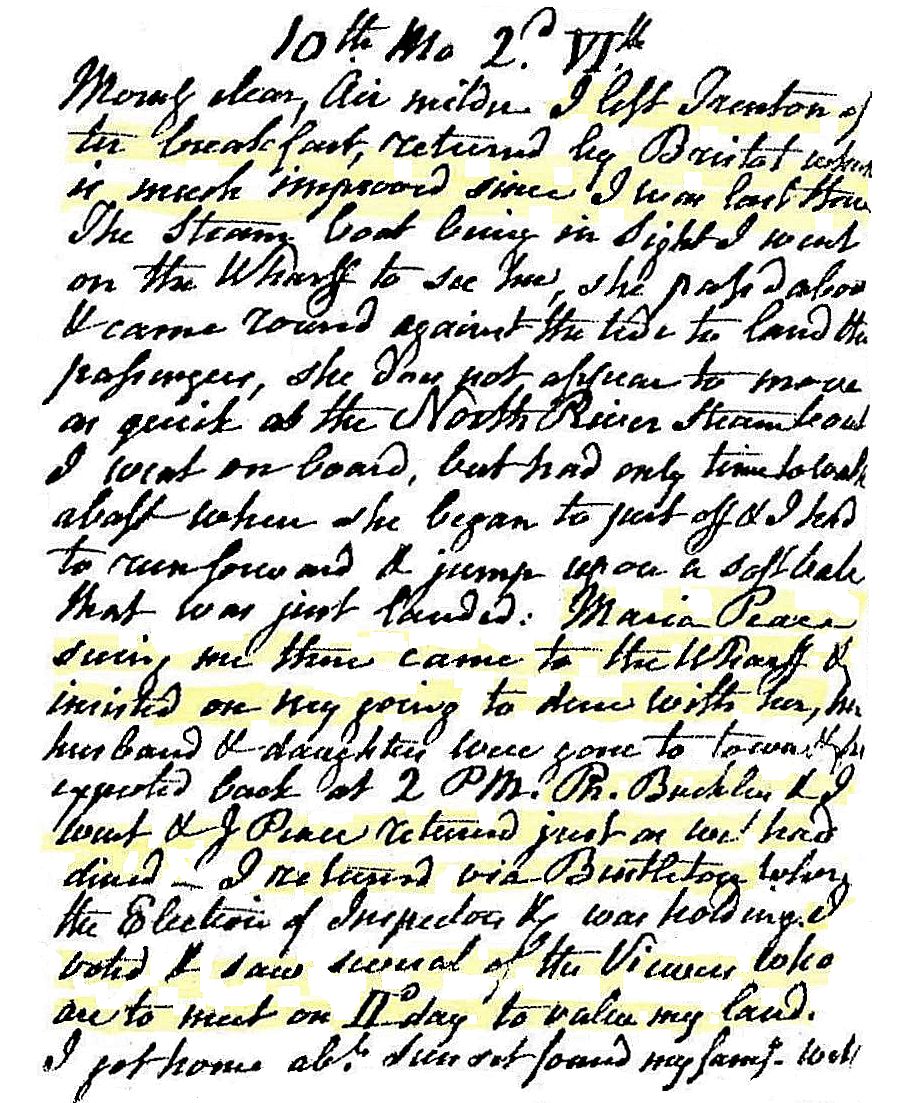 10th Mo 2d VIth
Morng clear, Air milder I left Trenton af
ter breakfast, returned by Bristol which
is much improved since I was last there
The Steam boat being in sight I went
on the Wharff to see her, she passed above
& came round against the tide to land the
passengers, she does not appear to move
as quick as the North River Steam boat
I went on board, but had only time to walk
abaft when she began to put off & I had
to run forward & jump upon a soft bale
that was just landed: Maria Peace
seeing me there came to the Wharff &
insisted on my going to dine with her, her
husband & daughter were gone to town &
expected back at 2 PM. Ph. Buckley & I
went & J Peace returned just as we had
dined – I returned via Bustleton where
the Election of Inspector &c was holding. I
voted & saw several of the Viewers who
are to meet on IId day to value my land.
I got home abt. sun set found my famy. well